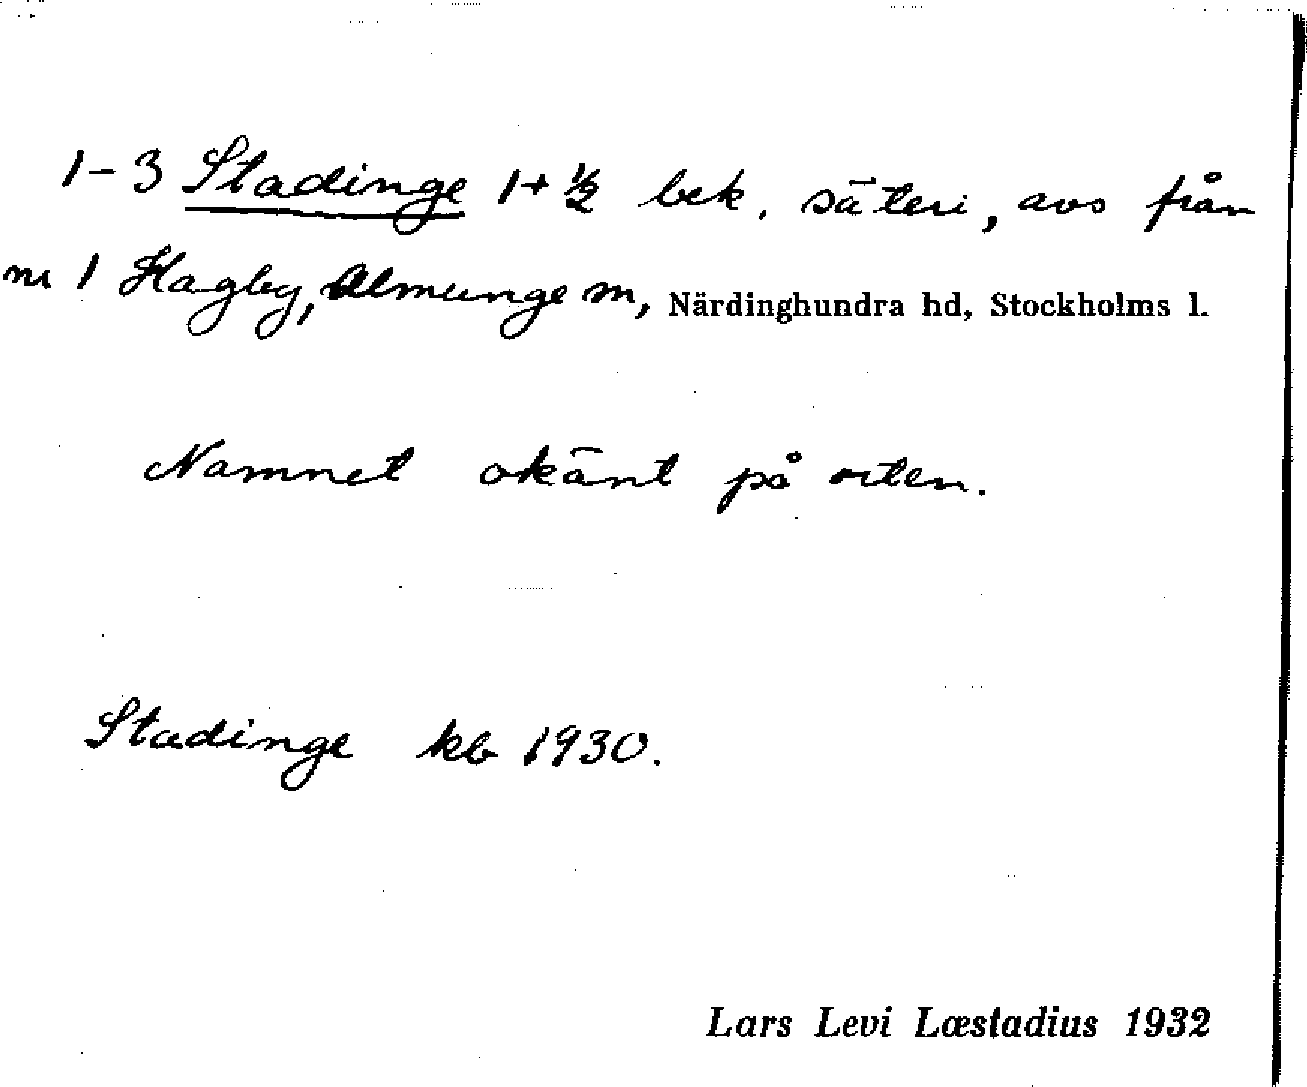 1-3 Stadinge 1+½ bek. säteri, avs från
nr 1 Hagby, Almunge sn, Närdinghundra hd, Stockholms l.
Namnet okänt på orten.
Stadinge kb 1930.
Lars Levi Læstadius 1932